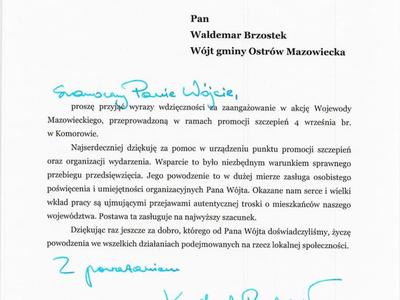 Pan
Waldemar Brzostek
Wójt gminy Ostrów Mazowiecka
Szanowny Panie Wójcie,
proszę przyjąć wyrazy wdzięczności za zaangażowanie w akcję Wojewody
Mazowieckiego, przeprowadzoną w ramach promocji szczepień 4 września br.
w Komorowie.
Najserdeczniej dziękuję za pomoc w urządzeniu punktu promocji szczepień
oraz organizacji wydarzenia. Wsparcie to było niezbędnym warunkiem sprawnego
przebiegu przedsięwzięcia. Jego powodzenie to w dużej mierze zasługa osobistego
poświęcenia i umiejętności organizacyjnych Pana Wójta. Okazane nam serce i wielki
wkład pracy są ujmującymi przejawami autentycznej troski o mieszkańców naszego
województwa. Postawa ta zasługuje na najwyższy szacunek.
Dziękując raz jeszcze za dobro, którego od Pana Wójta doświadczyliśmy, życzę
powodzenia we wszelkich działaniach podejmowanych na rzecz lokalnej społeczności.
Z poważaniem